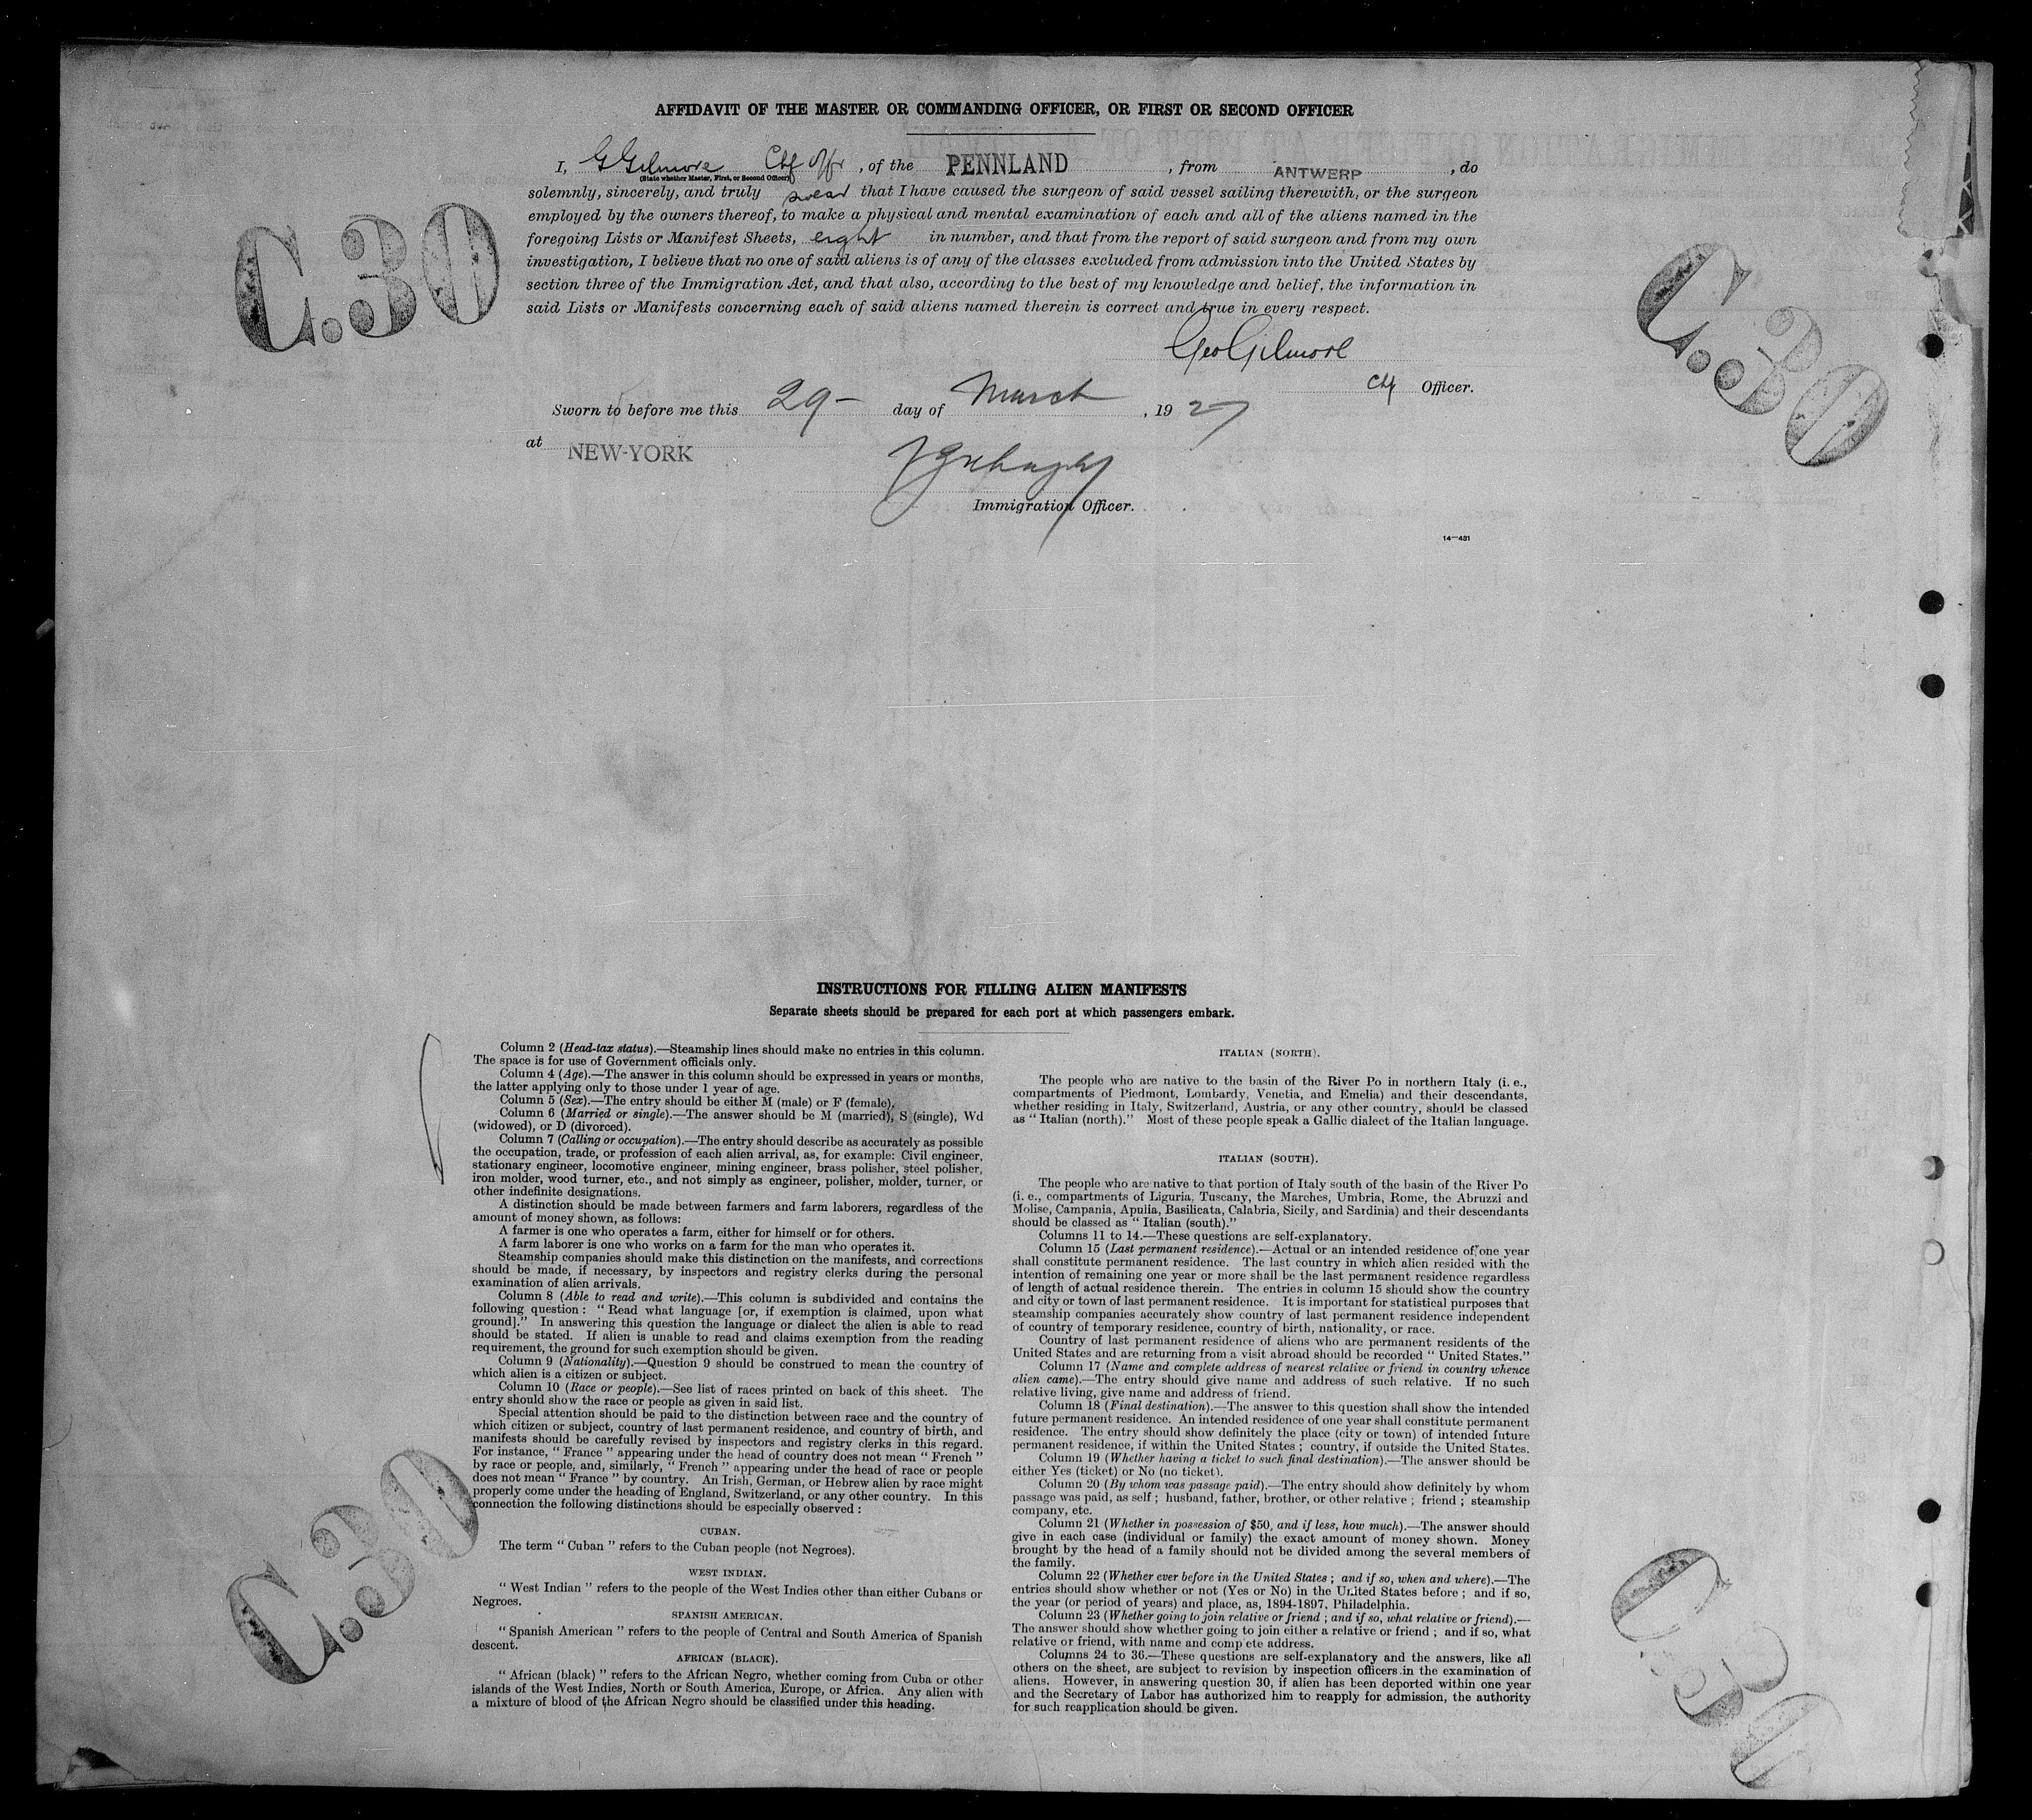 AFFIDAVIT OF THE MASTER OR COMMANDING OFFICER, OR FIRST OR SECOND OFFICER
I, G Gilmore Chf Offr, of the PENNLAND, from ANTWERP, do
(State whether Master, First, or Second Officer)
solemnly, sincerely, and truly swear that I have caused the surgeon of said vessel sailing therewith, or the surgeon
employed by the owners thereof, to make a physical and mental examination of each and all of the aliens named in the
foregoing Lists or Manifest Sheets, eight in number, and that from the report of said surgeon and from my own
investigation, I believe that no one of said aliens is of any of the classes excluded from admission into the United States by
section three of the Immigration Act, and that also, according to the best of my knowledge and belief, the information in
said Lists or Manifests concerning each of said aliens named therein is correct and true in every respect.
C.30
C.30
Geo Gilmore
Chf Officer.
Sworn to before me this 29- day of March, 1927
at NEW-YORK
Immigration Officer.
14—431
INSTRUCTIONS FOR FILLING ALIEN MANIFESTS
Separate sheets should be prepared for each port at which passengers embark.
Column 2 (Head-tax status).—Steamship lines should make no entries in this column.
The space is for use of Government officials only.
Column 4 (Age).—The answer in this column should be expressed in years or months,
the latter applying only to those under 1 year of age.
Column 5 (Sex).—The entry should be either M (male) or F (female).
Column 6 (Married or single).—The answer should be M (married), S (single), Wd
(widowed), or D (divorced).
Column 7 (Calling or occupation).—The entry should describe as accurately as possible
the occupation, trade, or profession of each alien arrival, as, for example: Civil engineer,
stationary engineer, locomotive engineer, mining engineer, brass polisher, steel polisher,
iron molder, wood turner, etc., and not simply as engineer, polisher, molder, turner, or
other indefinite designations.
A distinction should be made between farmers and farm laborers, regardless of the
amount of money shown, as follows:
A farmer is one who operates a farm, either for himself or for others.
A farm laborer is one who works on a farm for the man who operates it.
Steamship companies should make this distinction on the manifests, and corrections
should be made, if necessary, by inspectors and registry clerks during the personal
examination of alien arrivals.
Column 8 (Able to read and write).—This column is subdivided and contains the
following question: “Read what language [or, if exemption is claimed, upon what
ground].” In answering this question the language or dialect the alien is able to read
should be stated. If alien is unable to read and claims exemption from the reading
requirement, the ground for such exemption should be given.
Column 9 (Nationality).—Question 9 should be construed to mean the country of
which alien is a citizen or subject.
Column 10 (Race or people).—See list of races printed on back of this sheet. The
entry should show the race or people as given in said list.
Special attention should be paid to the distinction between race and the country of
which citizen or subject, country of last permanent residence, and country of birth, and
manifests should be carefully revised by inspectors and registry clerks in this regard.
For instance, “France” appearing under the head of country does not mean “French”
by race or people, and, similarly, “French” appearing under the head of race or people
does not mean “France” by country. An Irish, German, or Hebrew alien by race might
properly come under the heading of England, Switzerland, or any other country. In this
connection the following distinctions should be especially observed:
CUBAN.
The term “Cuban” refers to the Cuban people (not Negroes).
WEST INDIAN.
“West Indian” refers to the people of the West Indies other than either Cubans or
Negroes.
SPANISH AMERICAN.
“Spanish American” refers to the people of Central and South America of Spanish
descent.
AFRICAN (BLACK).
“African (black)” refers to the African Negro, whether coming from Cuba or other
islands of the West Indies, North or South America, Europe, or Africa. Any alien with
a mixture of blood of the African Negro should be classified under this heading.
ITALIAN (NORTH).
The people who are native to the basin of the River Po in northern Italy (i. e.,
compartments of Piedmont, Lombardy, Venetia, and Emelia) and their descendants,
whether residing in Italy, Switzerland, Austria, or any other country, should be classed
as “Italian (north).” Most of these people speak a Gallic dialect of the Italian language.
ITALIAN (SOUTH).
The people who are native to that portion of Italy south of the basin of the River Po
(i. e., compartments of Liguria, Tuscany, the Marches, Umbria, Rome, the Abruzzi and
Molise, Campania, Apulia, Basilicata, Calabria, Sicily, and Sardinia) and their descendants
should be classed as “Italian (south).”
Columns 11 to 14.—These questions are self-explanatory.
Column 15 (Last permanent residence).—Actual or an intended residence of one year
shall constitute permanent residence. The last country in which alien resided with the
intention of remaining one year or more shall be the last permanent residence regardless
of length of actual residence therein. The entries in column 15 should show the country
and city or town of last permanent residence. It is important for statistical purposes that
steamship companies accurately show country of last permanent residence independent
of country of temporary residence, country of birth, nationality, or race.
Country of last permanent residence of aliens who are permanent residents of the
United States and are returning from a visit abroad should be recorded “United States.”
Column 17 (Name and complete address of nearest relative or friend in country whence
alien came).—The entry should give name and address of such relative. If no such
relative living, give name and address of friend.
Column 18 (Final destination).—The answer to this question shall show the intended
future permanent residence. An intended residence of one year shall constitute permanent
residence. The entry should show definitely the place (city or town) of intended future
permanent residence, if within the United States; country, if outside the United States.
Column 19 (Whether having a ticket to such final destination).—The answer should be
either Yes (ticket) or No (no ticket).
Column 20 (By whom was passage paid).—The entry should show definitely by whom
passage was paid, as self; husband, father, brother, or other relative; friend; steamship
company, etc.
Column 21 (Whether in possession of $50, and if less, how much).—The answer should
give in each case (individual or family) the exact amount of money shown. Money
brought by the head of a family should not be divided among the several members of
the family.
Column 22 (Whether ever before in the United States; and if so, when and where).—The
entries should show whether or not (Yes or No) in the United States before; and if so,
the year (or period of years) and place, as, 1894-1897, Philadelphia.
Column 23 (Whether going to join relative or friend; and if so, what relative or friend).—
The answer should show whether going to join either a relative or friend; and if so, what
relative or friend, with name and comp ete address.
Columns 24 to 36.—These questions are self-explanatory and the answers, like all
others on the sheet, are subject to revision by inspection officers in the examination of
aliens. However, in answering question 30, if alien has been deported within one year
and the Secretary of Labor has authorized him to reapply for admission, the authority
for such reapplication should be given.
C.30
C.30